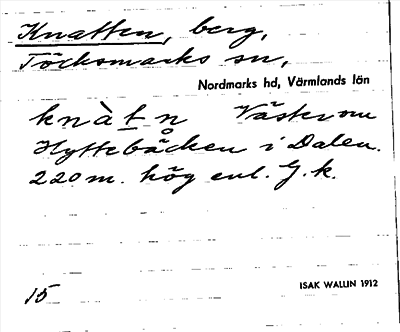 Knatten, berg,
Töcksmarks sn,
Nordmarks hd, Värmlands län
knàt̲n̥ Väster om
Hyttebäcken i Dalen.
220 m. hög enl. G.k.
15
ISAK WALLIN 1912